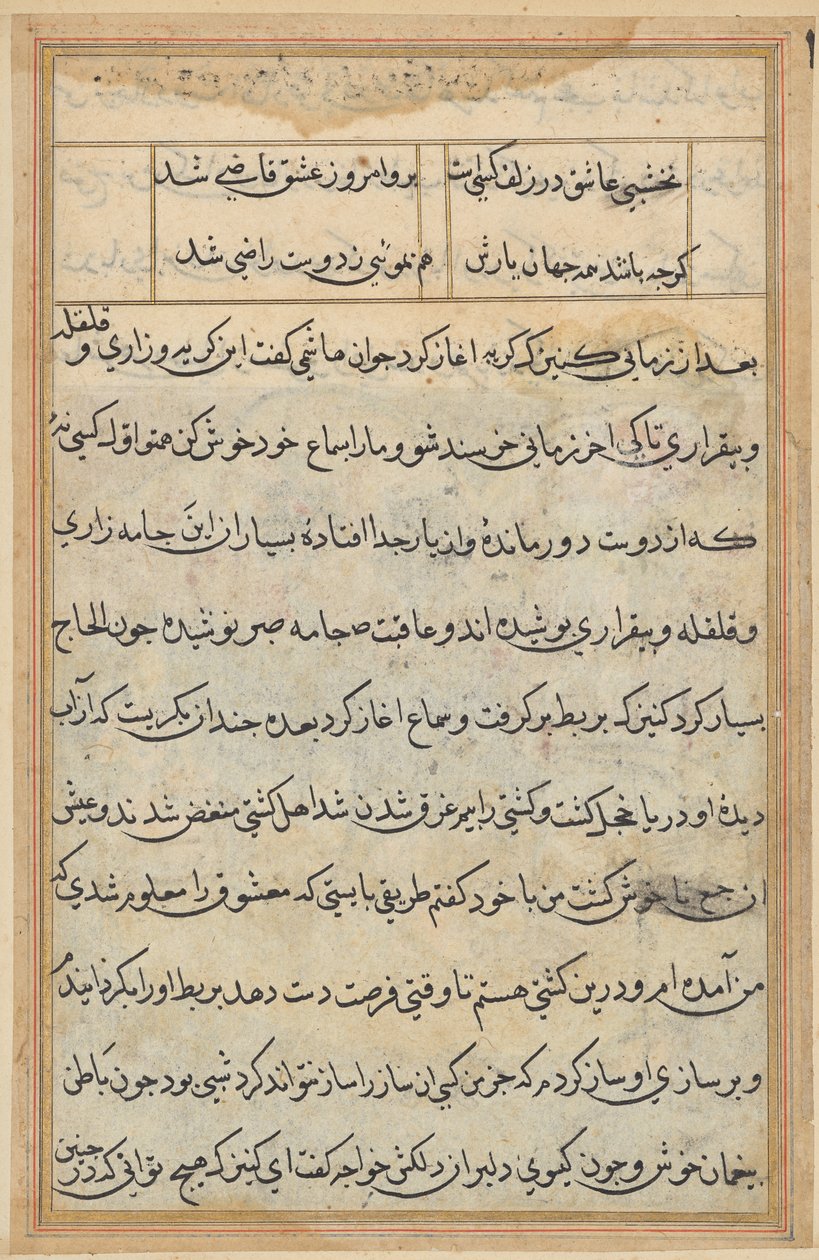 نخشبي عاشق در زلف كسي است برو امروز عشق قاضي شد
كرچه باشد همه جهان يارش هم بموئي ز دوست راضي شد
بعد از زماني كنيزك كريه اغاز كرد جوان هاشمي كفت اين كريه وزاري و قلقله
وبيقراري تا كي اخر زماني خرسند شو ومارا بسماع خود خوش كن همتو اول كسي نه
كه از دوست دور ماندۀ واز يار جدا افتادۀ بسياران اين جامه زاري
وقلقله وبيقراري پوشيده اند وعاقبت جامه صبر پوشيده چون الحاح
بسيار كرد كنيزك بربط بر كرفت وسماع اغاز كرد بعده چندان بكريست كه از آب
ديدۀ او دريا خجل كشت وكشتي را بيم غرق شدن شد اهل كشتي منغض شدند وعيش
ان جمع ناخوش كشت من با خود كفتم طريقي بايستي كه معشوق را معلوم شدي كه
من آمده ام ودرين كشتي هستم تا وقتي فرصت دست دهد بربط اورا بكردانيدم
وبر سازي او ساز كردم كه جز من كسي ان ساز را ساز نتواند كرد شبي بود چون باطن
بيغمان خوش وچون كيسوي دلبران دلكش خواجه كفت اي كنيزك هيچ تواني كه در چنين